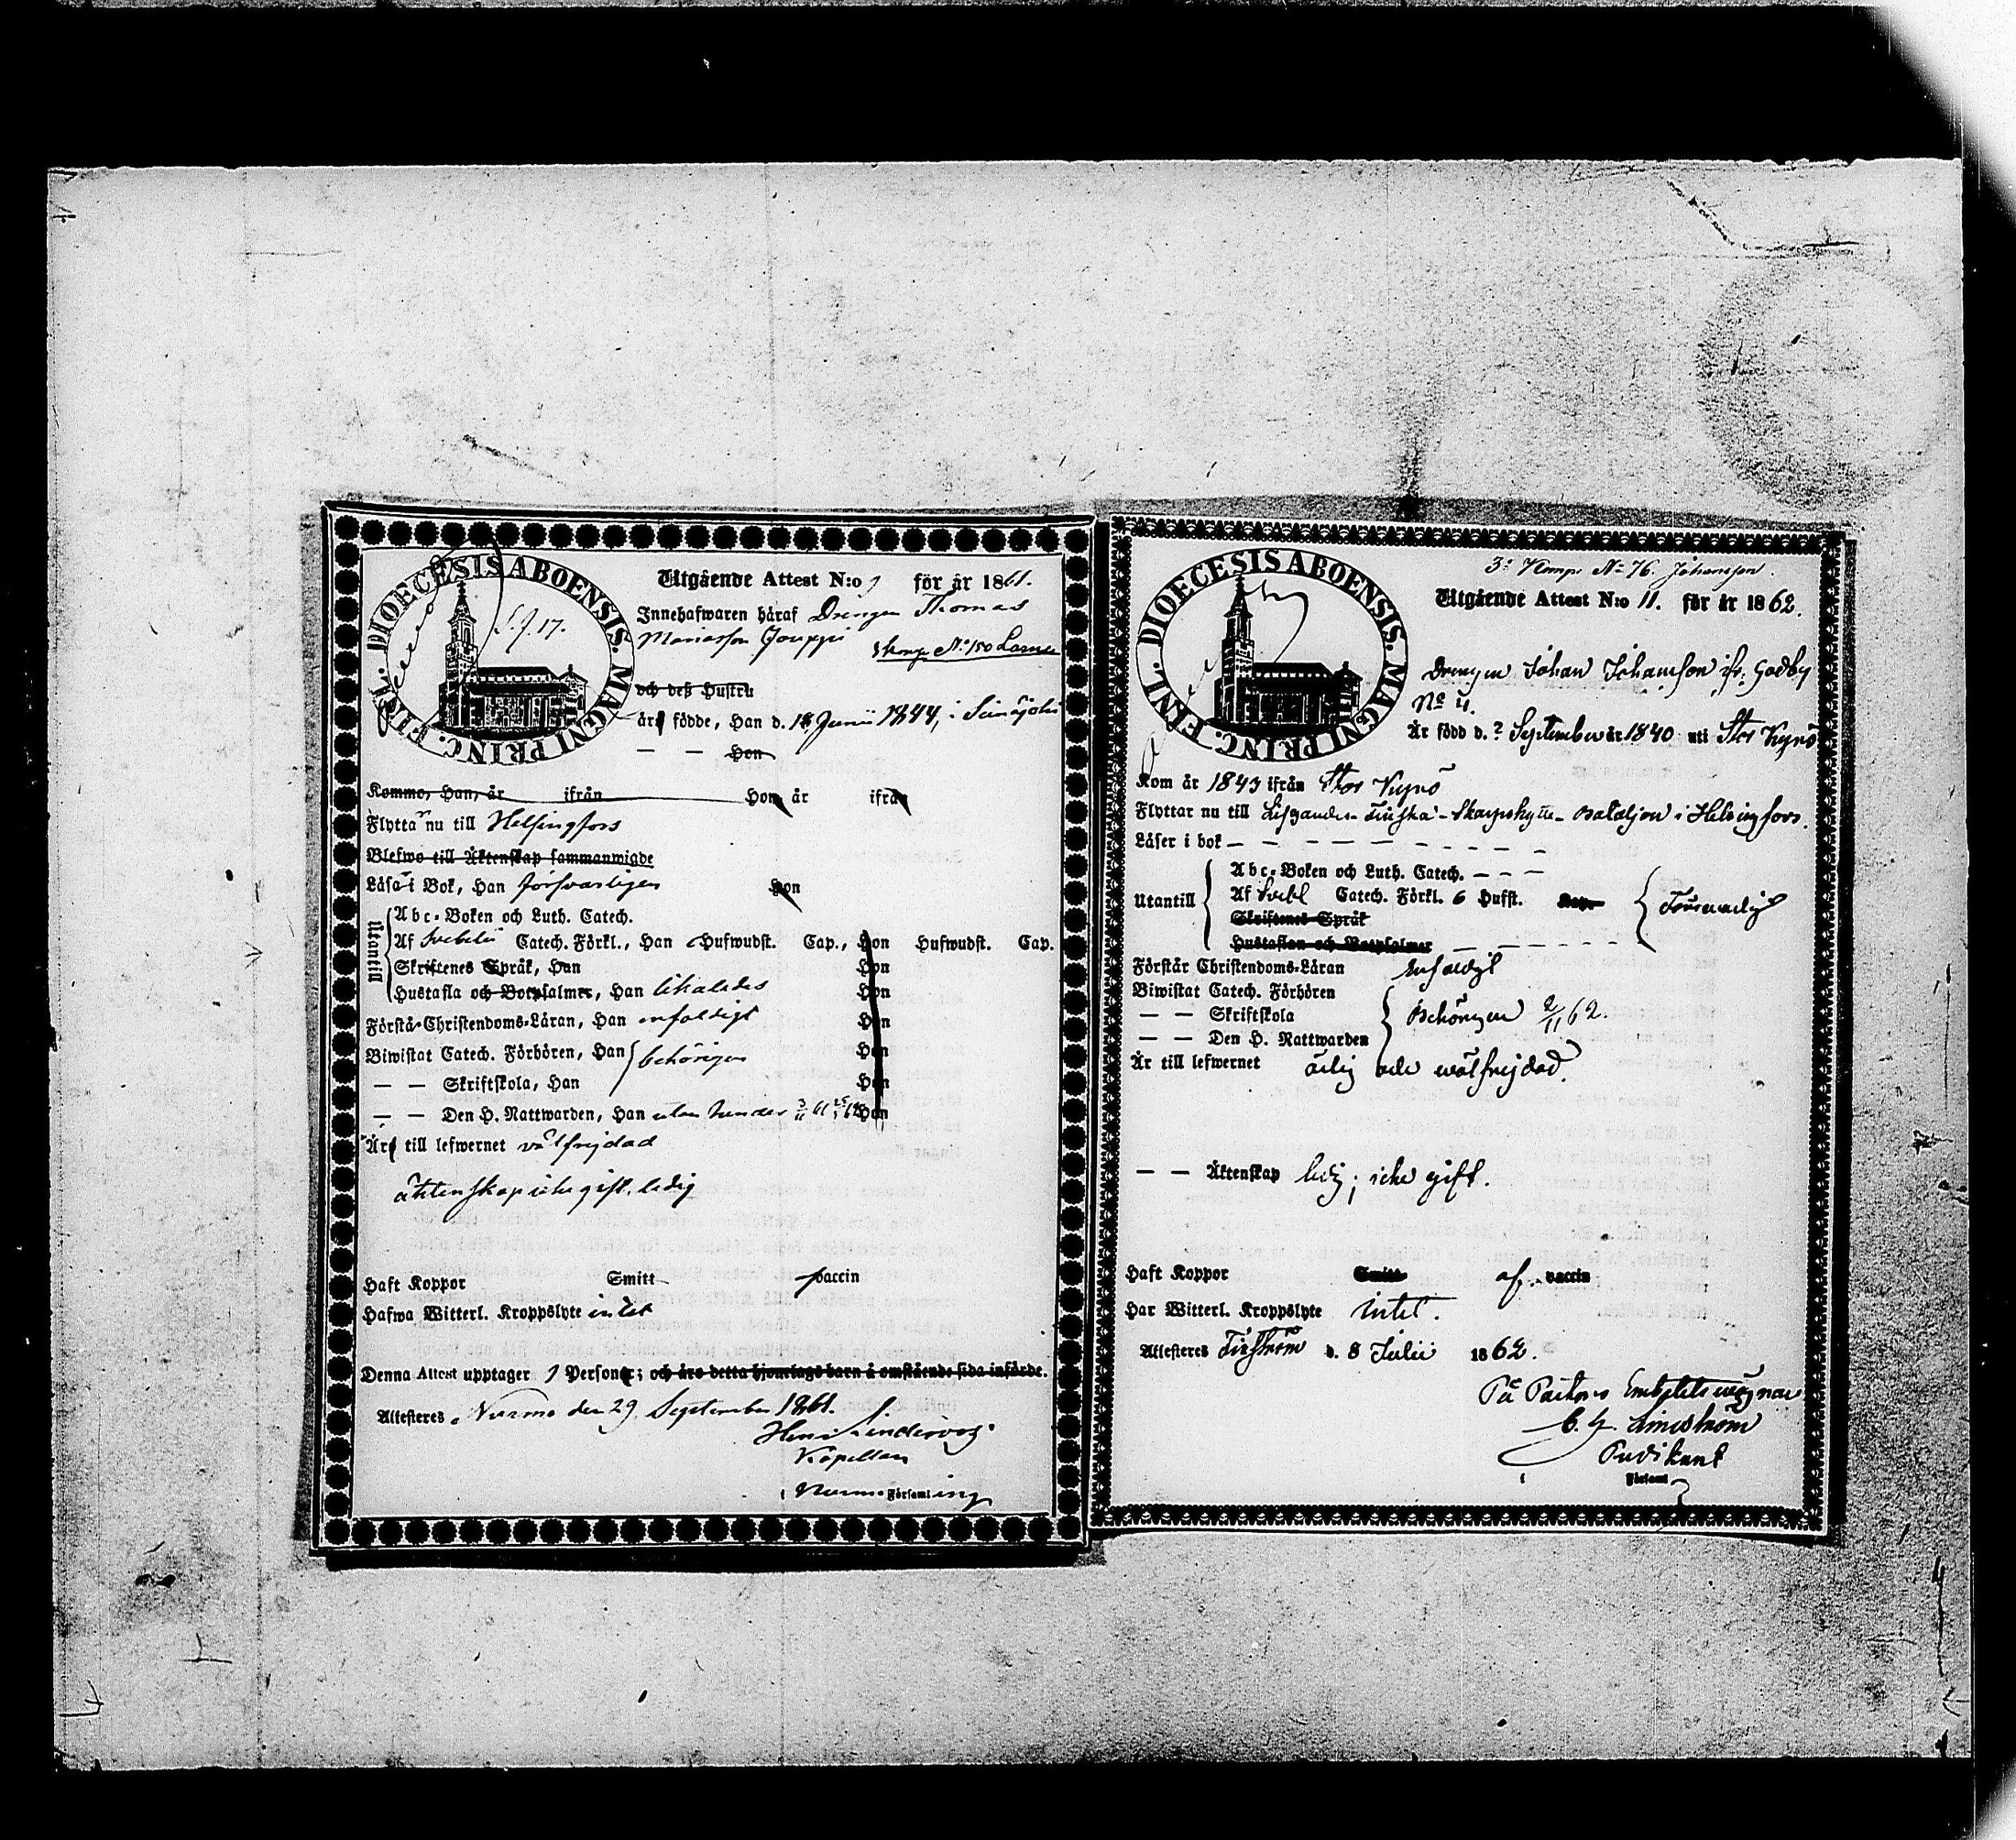 DIOECESIS ABOENSIS. MAGNI PRINC. FINL.
Utgående Attest N:o 1 för år 1861.
Innehafwaren häraf Drengen Thomas
Mariasson Jouppi
och deß Hustru
är födde, Han d. 18 Junii 1844, i Seinäjoki
— — Hon
Kommo, Han, år ifrån Hon år ifrån
Flytta nu till Helsingfors
Blefwo till Äktenskap sammanwigde
Läsa i Bok, Han försvarligen Hon
Utantill
Abc-Boken och Luth. Catech.
Af Svebelii Catech. Förkl., Han Hufwudst. Cap., Hon Hufwudst. Cap.
Skriftenes Språk, Han Hon
Hustafla och Botpsalmer, Han likaledes Hon
Förstå Christendoms-Läran, Han enfaldigt Hon
Biwistat Catech. Förhören, Han behörigen Hon
— — Skriftskola, Han Hon
— — Den H. Nattwarden, Han utan hinder Hon
Är till lefwernet välfrejdad
äktenskap icke gift, ledig
Haft Koppor Smitt vaccin
Hafwa Witterl. Kroppslyte intet
Denna Attest upptager 1 Person; och äro detta hjonelags barn å omstående sida införde.
Attesteres Nurmo den 29 September 1861.
Kapellan
i Nurmo Församling
3: Komp. No 76. Johansson.
DIOECESIS ABOENSIS. MAGNI PRINC. FINL.
Utgående Attest N:o 11. för år 1862.
Drengen Johan Johansson ifr. Godby
No 4.
Är född d. ? September år 1840 uti Stor Kyro
Kom år 1843 ifrån Stor Kyro
Flyttar nu till Lifgardes Finska Skarpskytte-Bataljon i Helsingfors.
Läser i bok — — — — — — — —
Utantill
Abc-Boken och Luth. Catech. — — —
Af Svebl Catech. Förkl. 6 Hufst. Kap. Försvarligt
Skriftenes Språk
Hustaflan och Botpsalmer — — — — — —
Förstår Christendoms-Läran enfaldigt
Biwistat Catech. Förhören
— — Skriftskola Behörigen 2/11 62.
— — Den H. Nattwarden
Är till lefwernet ärlig och wälfrejdad.
— — Äktenskap ledig; icke gift.
Haft Koppor Smitt af vaccin
Har Witterl. Kroppslyte intet.
Attesteres d. 8 Julii 1862.
På Pastors Embetets wägnar
Predikant
i Församl